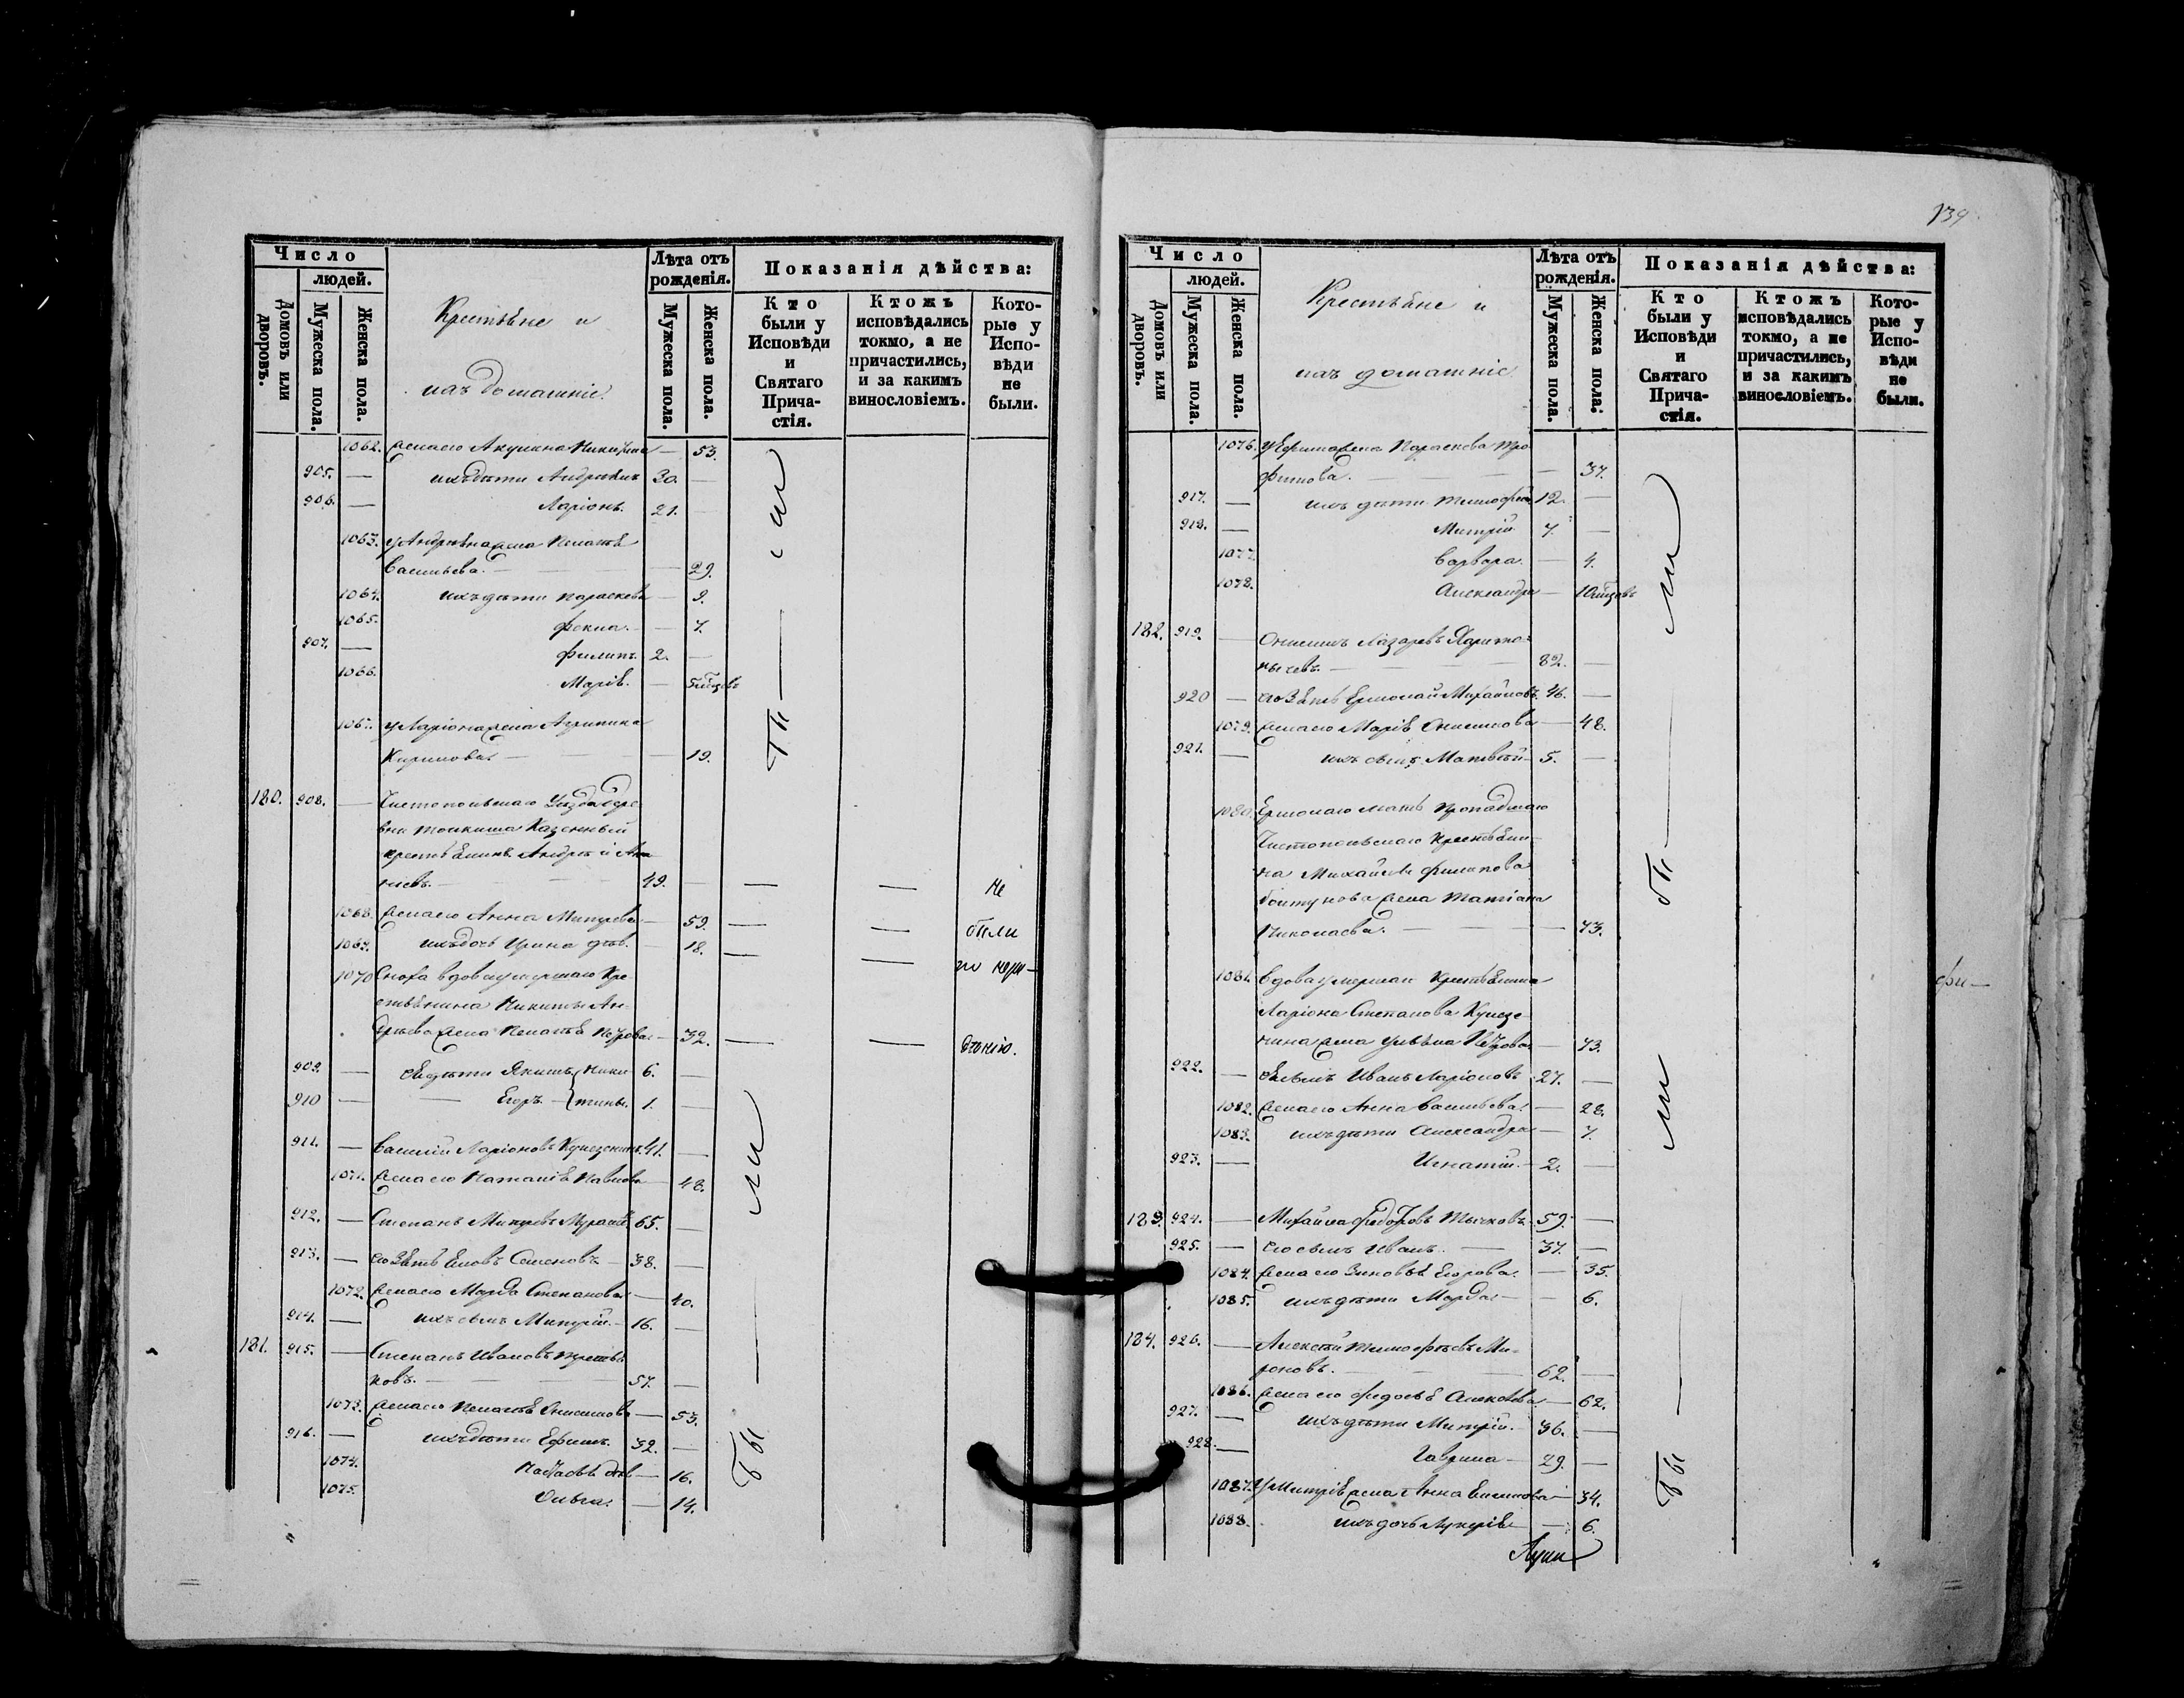 Число
людей.
Домовъ или дворовъ.
Мужеска пола.
Женска пола.
Крестьяне и
ихъ домашніе.
Лѣта отъ рожденія.
Мужеска пола.
Женска пола.
Показанія дѣйства:
Кто были у Исповѣди и Святаго Причастія.
Ктожъ исповѣдались токмо, а не причастились, и за какимъ винословіемъ.
Которые у Исповѣди не были.
1062. Жена его Акулина 53.
905. — ихъ дѣти Андреянъ 30. —
906. — Ларіонъ. 21. —
1063. У Андреяна жена Пелагея
Васильева. — — 29.
1064. ихъ дѣти Параскева — 9.
1065. Фекла. — 7.
907. — Филипъ. 2. —
1066. Марія. —
1067. У Ларіона жена Агрипина
Кирилова. — — 19.
180. 908. — Чистопольскаго Уѣзда дере
вни Толкиша Казенный
крестьянинъ Андрей Ана
ніевъ. — 49. — — — Не
1068. Жена его Анна — 59. — — были
1069. ихъ дочь Ирина дѣв. — 18. — —
1070 Сноха вдова умершаго Кре
стьянина Никиты Ан-
дреева жена Пелагея Петрова — 32. — —
дѣнію.
909. — Ея дѣти Якимъ Ники 6. —
910 — — Егоръ. — тины. 1. —
911. — Василій Ларіоновъ 41. —
1071. Жена его Наталія Павлова — 48.
912. — Степанъ 65. —
913. — его зять Семеновъ — 38. —
1072. Жена его Марфа Степанова — 40.
914. — ихъ сынъ Митрій. — 16. —
181. 915. — Степанъ Ивановъ
ковъ. — — 57. —
1073. Жена его Пелагея Онисимова — 53.
916. — ихъ дѣти Ефимъ. 32. —
1074. дѣв — 16.
1075. Ольга. — 14.
Бы — ли
Бы — ли
139
Число
людей.
Домовъ или дворовъ.
Мужеска пола.
Женска пола.
Крестьяне и
ихъ домашніе
Лѣта отъ рожденія.
Мужеска пола.
Женска пола.
Показанія дѣйства:
Кто были у Исповѣди и Святаго Причастія.
Ктожъ исповѣдались токмо, а не причастились, и за какимъ винословіемъ.
Которые у Исповѣди не были.
1076. У Ефима жена Параскева Тро
фимова. — — 37.
917. — ихъ дѣти Тимофей 12. —
918. — Митрій 7. —
1077. Варвара. — 4.
1078. Александра —
182. 919. — Онисимъ Лазаревъ Харито-
нычевъ. — 82. —
920 — его зять Ермолай Михайловъ. 46. —
1079. Жена его Марія Онисимова — 48.
921. — ихъ сынъ Матвѣй — 5. —
1080. Ермолаю мать
Чистопольскаго Крестьяни-
на Михайлы Филипова
жена Татіана
Николаева. — — 73.
1081. Вдова умершаго Крестьянина
Ларіона Степанова
жена Ульяна Петрова — 73.
922. — Ея сынъ Иванъ Ларіоновъ 27. —
1082. Жена его Анна Васильева. — 28.
1083. ихъ дѣти Александра — 7.
923. — Игнатій. — 2. —
183. 924. — Михайла Федоровъ Тычковъ. 59. —
925. — его сынъ Иванъ. — 37. —
1084. Жена его Зиновья Егорова. — 35.
1085. ихъ дѣти Марфа. — — 6.
184. 926. — Алексѣй Тимофѣевъ Ми-
роновъ. — 62. —
1086. Жена его Федосья — 62.
927. — ихъ дѣти Митрій. — 36. —
928. — Гаврила — 29. —
1087. У Митрія жена Анна — 34.
1088. ихъ дочь Лукерія — — 6.
Бы — ли
Бы — ли